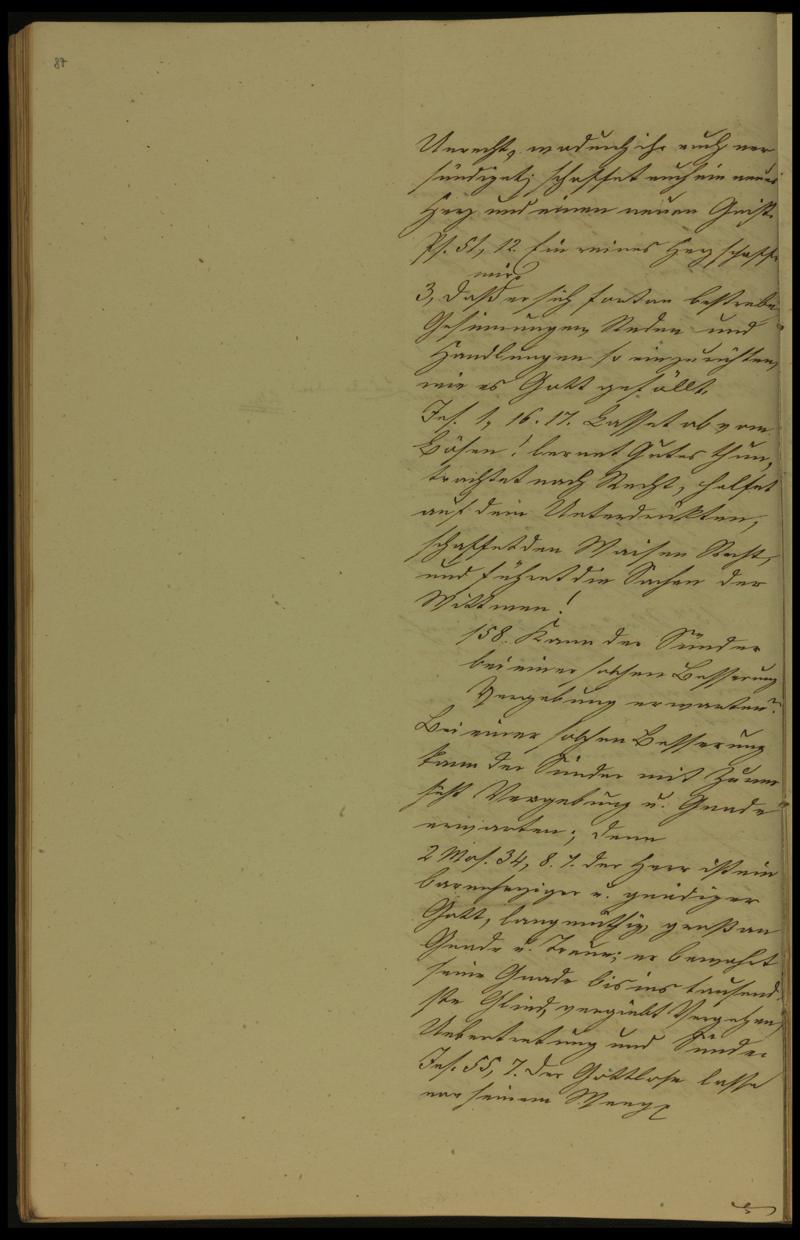 87
Unrecht, wodurch ihr euch ver
sündiget; schaffet euch ein neues
Herz und einen neuen Geist.
Ps. 51, 12. Ein reines Herz schaffe
mir
3, Daß er sich fortan bestrebe
Gesinnungen, Reden und
Handlungen so einzurichten,
wie es Gott gefällt.
Jes. 1, 16. 17. Lasset ab vom
Bösen! lernet Gutes thun,
trachtet nach Recht, helfet
auf dem Unterdrükten,
schaffet den Waisen Recht,
und führet die Sachen der
Wittwen!
158. Kann der Sünder
bei einer solchen Besserung
Vergebung erwarten?
Bei einer solchen Besserung
kann der Sünder mit Zuver
sicht Vergebung u. Gnade
erwarten; denn
2 Mos. 34, 8. 7. der Herr ist ein
barmherziger u. gnädiger
Gott, langmüthig, groß an
Gnade u. Treue; er bewahrt
seine Gnade bis ins tausend
ste Glied, vergiebt Vergehen,
Uebertretung und Sünde.
Jes. 55, 7. Der Gottlose lasse
von seinem Wege